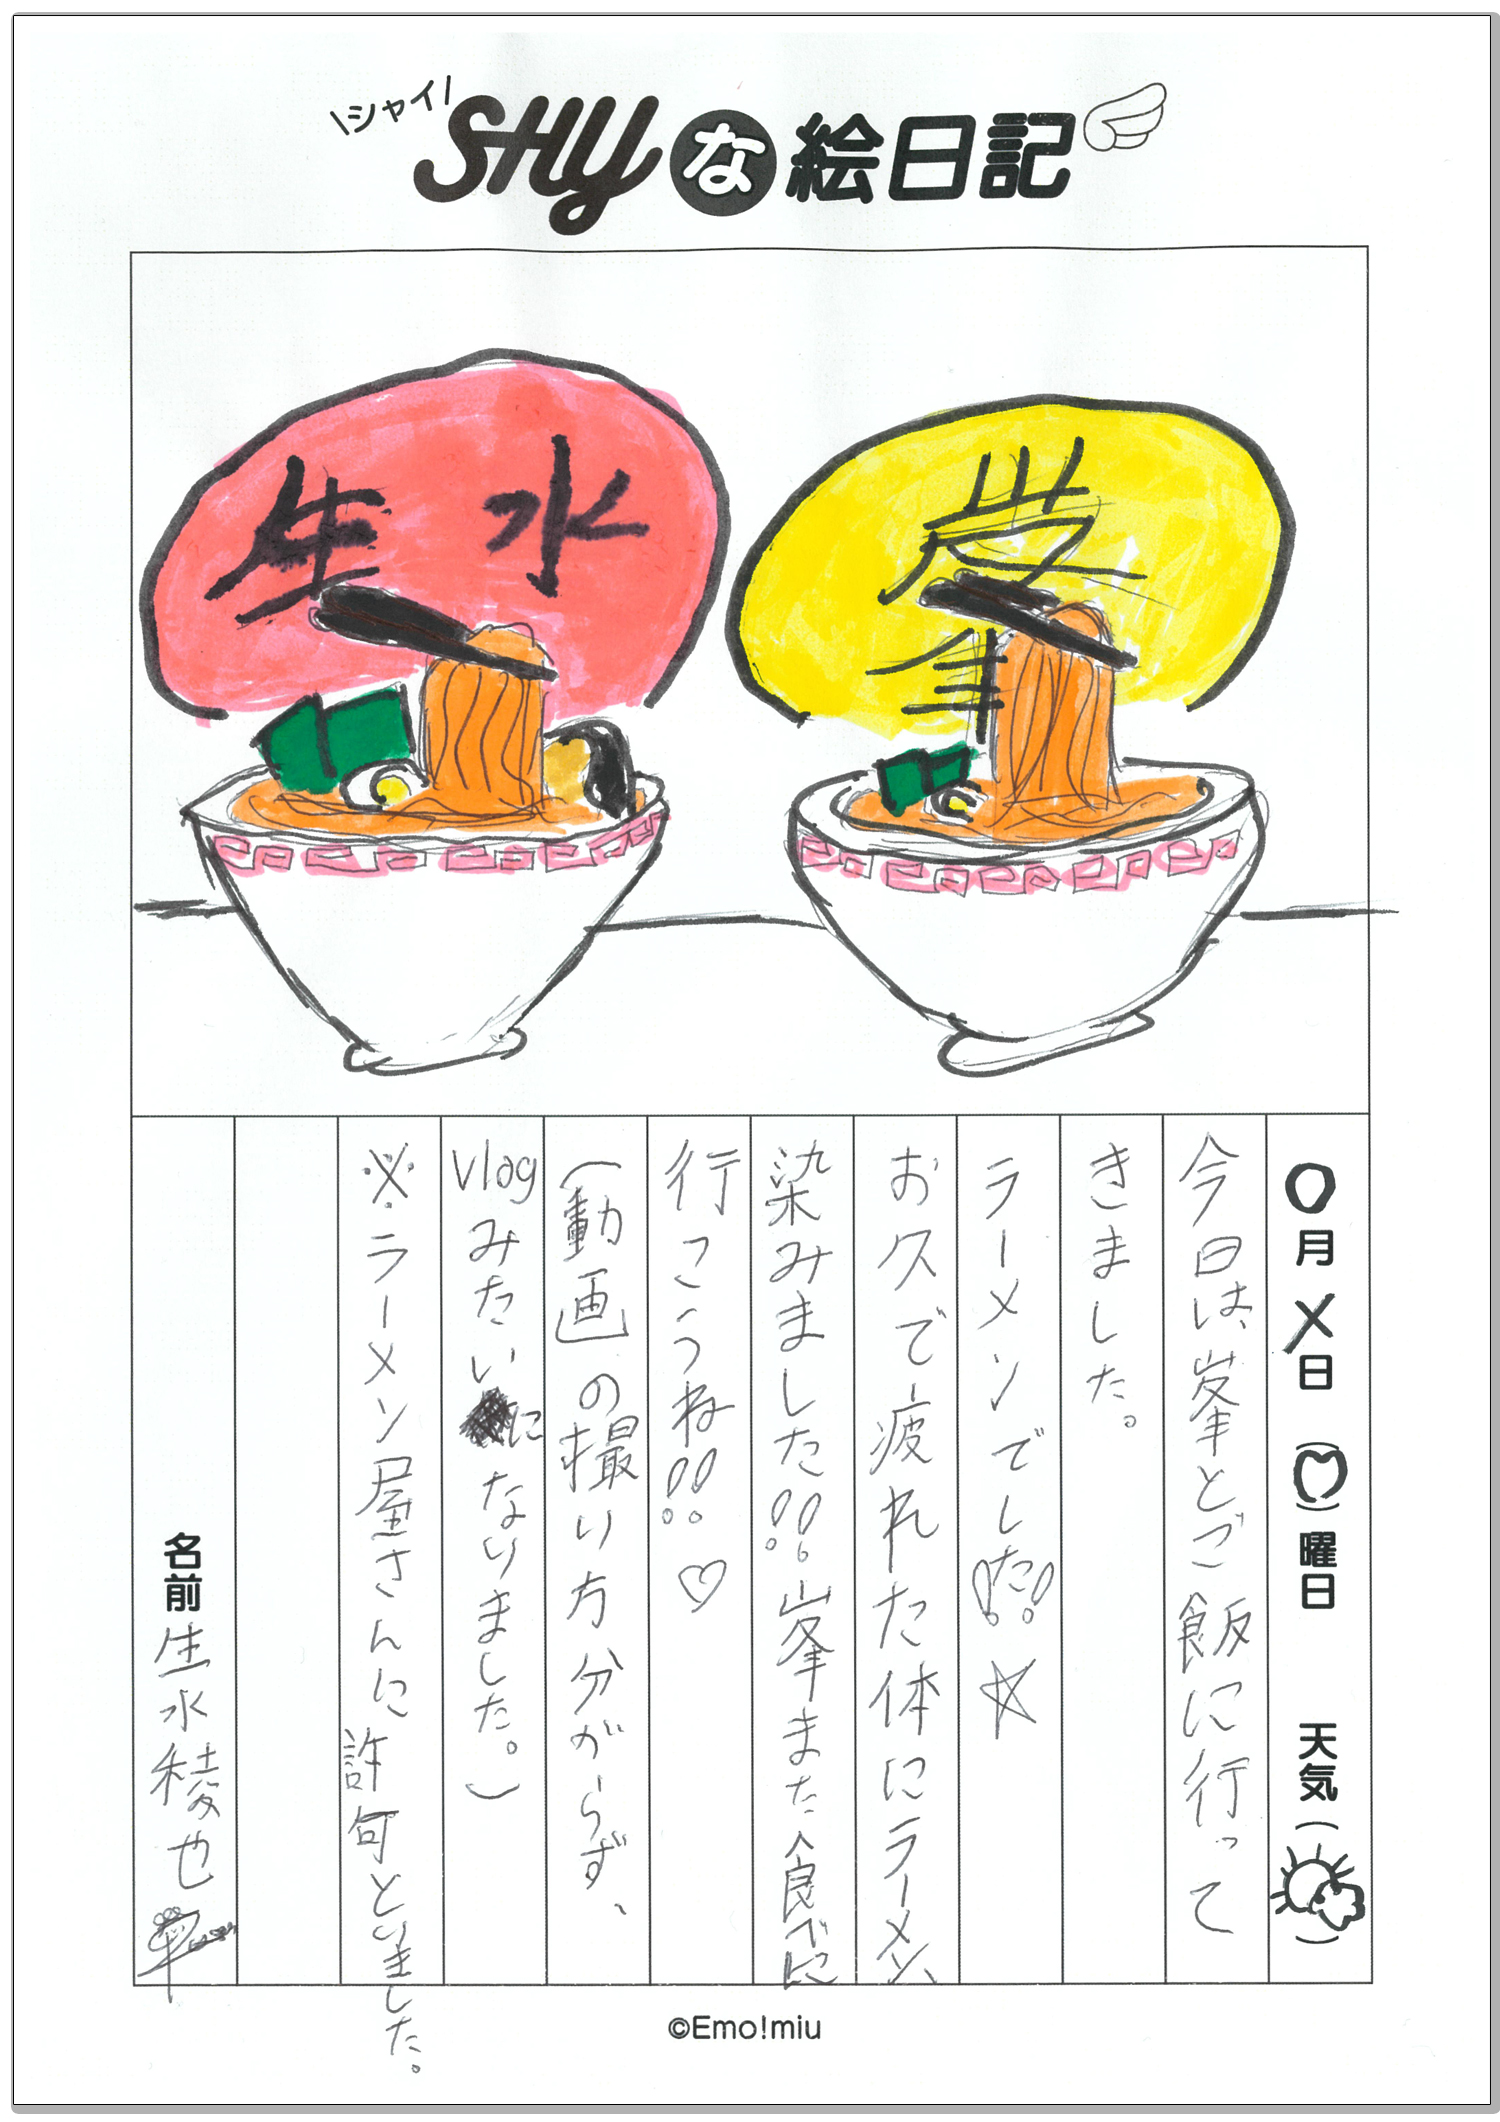 \シャイ/
SHyな絵日記
生 水
峯
〇月 ×日 (♡)曜日 天気( )
今日は、峯とご飯に行って
きました。
ラーメンでした!! ☆
お久で疲れた体にラーメン、
染みました!! 峯また食べに
行こうね!! ♡
(動画の撮り方分からず、
vlogみたいになりました。)
※ラーメン屋さんに許可とりました。
名前 生水稜也
©Emo!miu